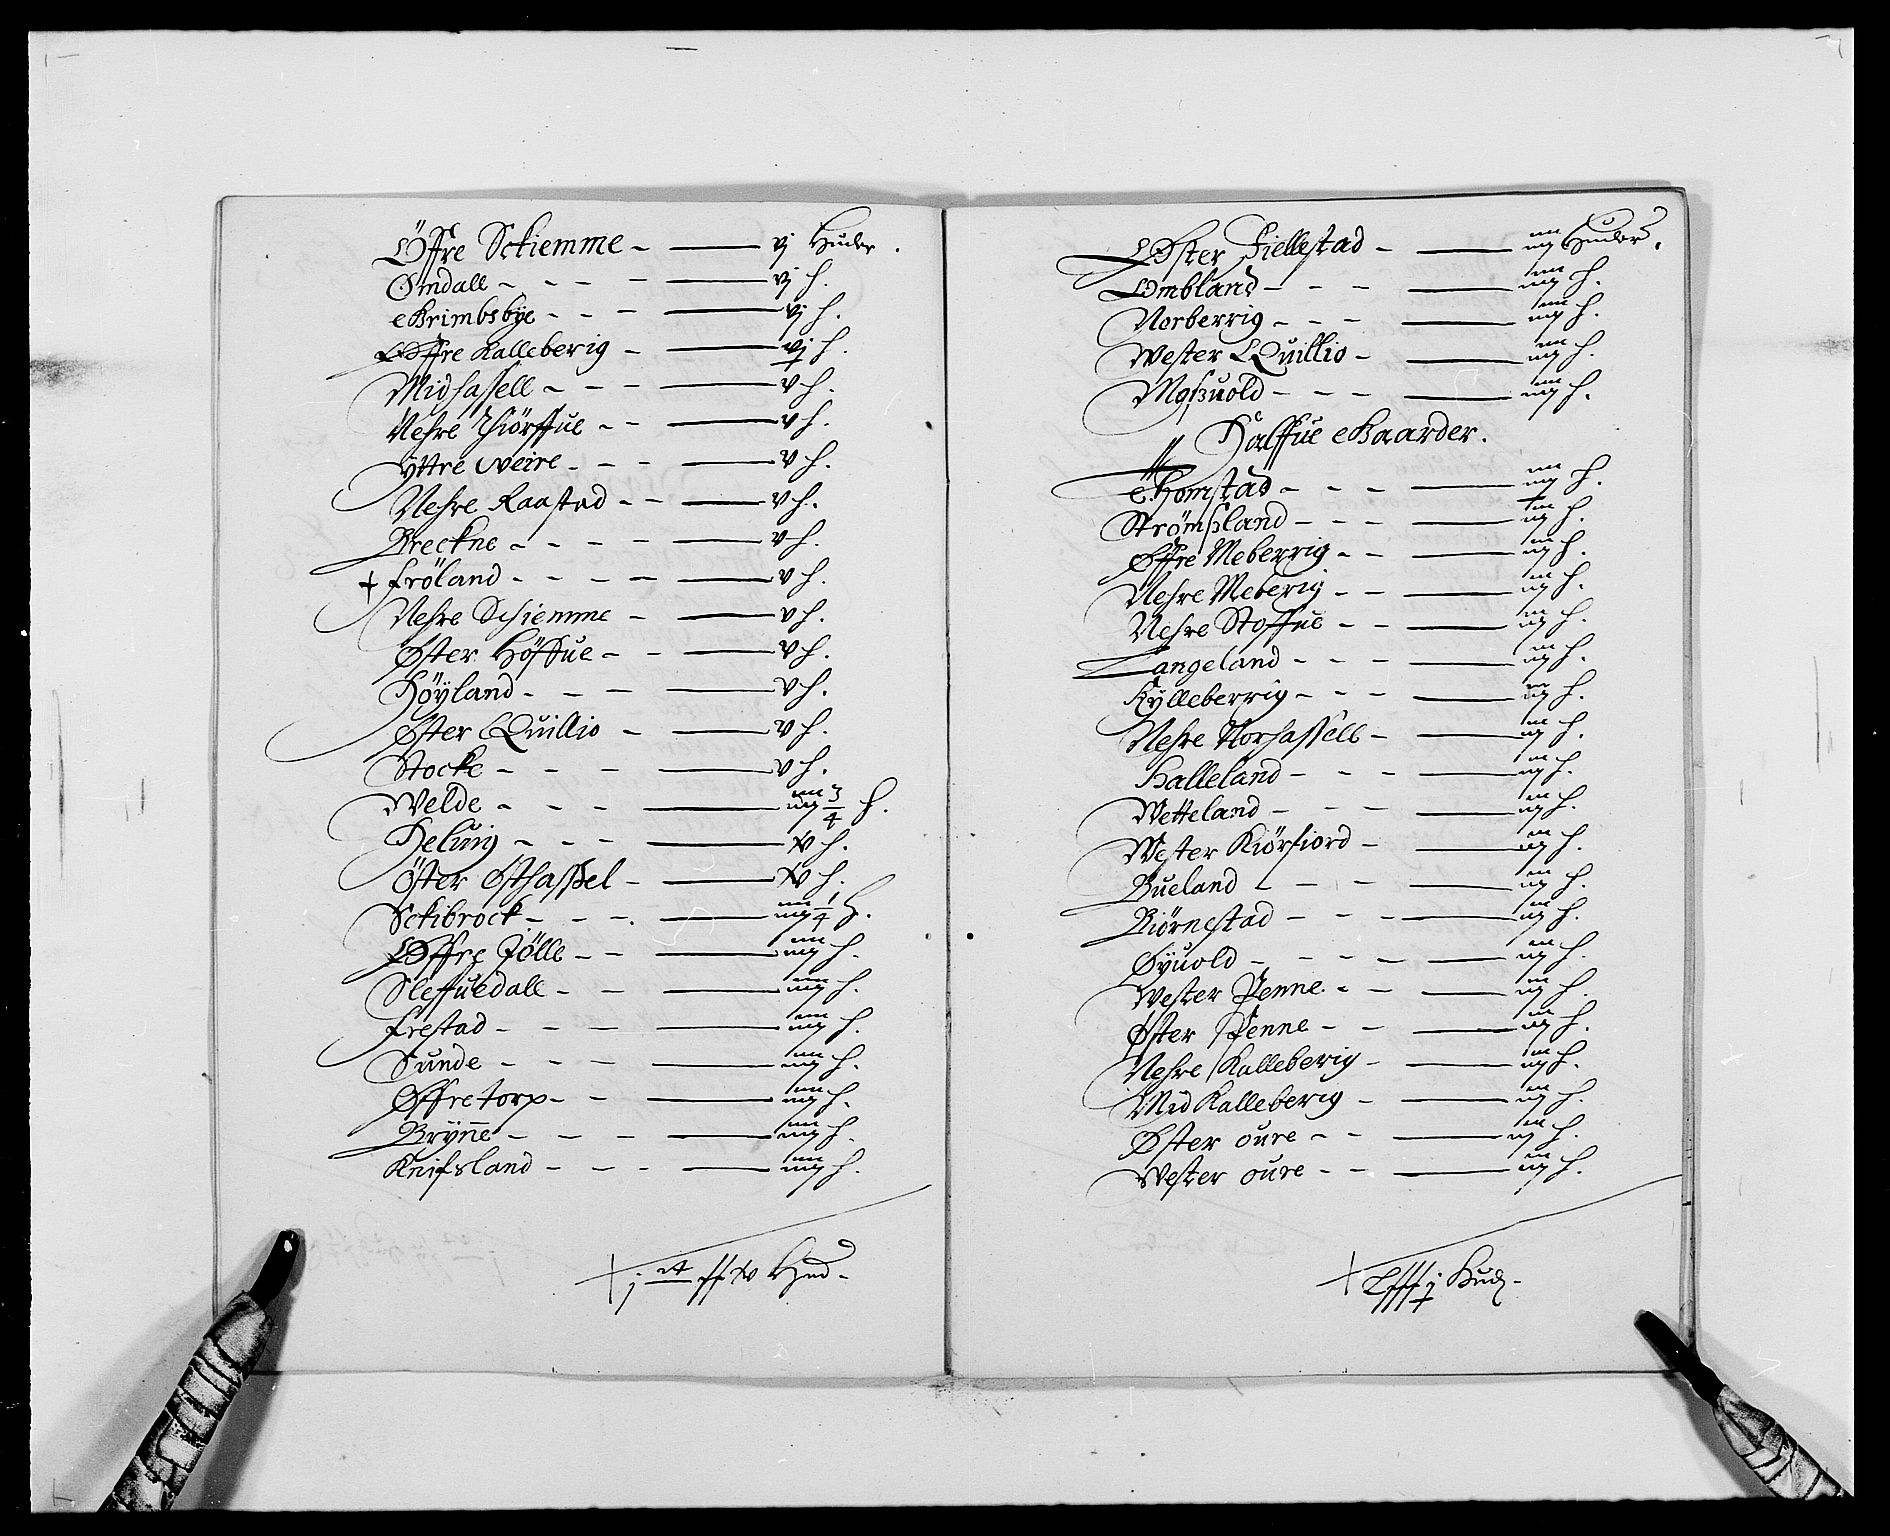 Öffre Sckiemme - — vj Huder.
Omdall - - - - — vj h.
Grimbsbye - - - — vj h.
Öffre Kalleberig - — vj h.
Midhassell - - - — v h.
Nehre Thiörffue - - — v h.
Yttre Weire - - - — v h.
Nehre Raastad - - — v h.
Breckne - - - - — v h.
+ Fröland - - - - — v h.
Nehre Schiemme - — v h.
Øster Höffue - - — v h.
Höyland - - - — v h.
Øster Quillio - — v h.
Stocke - - - — v h.
Welde - - - — iiij 3/4 h.
Heluig - - - — v h.
Öster Østhassel - — v h.
Sckibrock - - - — iiij 1/4 h.
Öffre Jölle - - — iiij h.
Sleffuedall - - — iiij h.
Frestad - - - — iiij h.
Sunde - - - — iiij h.
Øffre torp - - — iiij h.
Brÿnne - - - — iiij h.
Knifsland - - - — iiij h.
Hud -
Øster Fiellestad - — iiij Huder.
Ombland - - - — iiij h.
Norberrig - - - — iiij h.
Wester Quillio - — iiij h.
Moßuold - - - — iiij h.
Halffue Gaarder.
Homstad - - - — iiij h.
Strömßland - - - — iij h.
Øffre Meberrig - - — iij h.
Nehre Meberig - - — iij h.
Nehre Stoffue - - — iij h.
Langeland - - - — iij h.
Kylleberrig - - - — iij h.
Nehre Norhassell - — iij h.
Halleland - - - — iij h.
Wetteland - - - — iij h.
Wester Kiörfiord - — iij h.
Bueland - - - — iij h.
Biörnestad - - - — iij h.
Øyuold - - - - — iij h.
Wester Penne - - — iij h.
Øster Penne - - — iij h.
Nehre Kalleberig - — iij h.
Mid Kalleberig - — iij h.
Øster oure - - — iij h.
Wester oure - - — iij h.